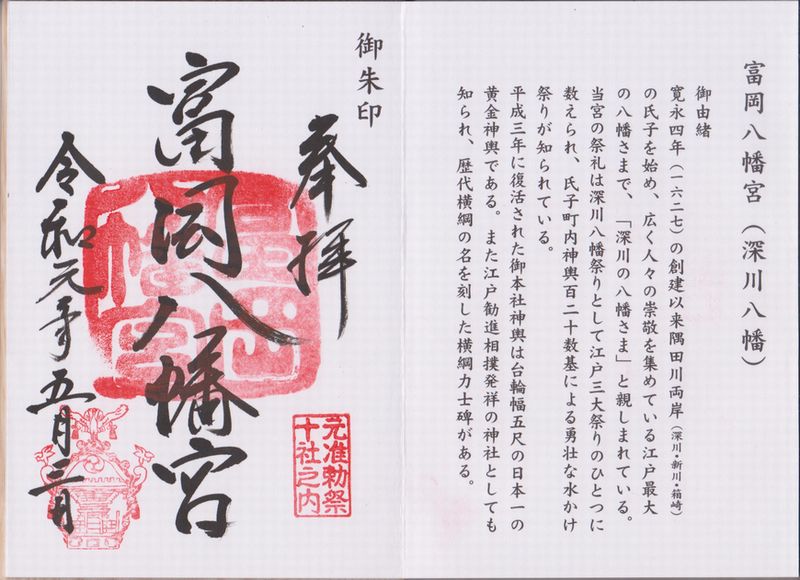 富岡八幡宮（深川八幡）
御由緒
寛永四年（一六二七）の創建以来隅田川両岸（深川・新川・箱崎）
の氏子を始め、広く人々の崇敬を集めている江戸最大
の八幡さまで、「深川の八幡さま」と親しまれている。
当宮の祭礼は深川八幡祭りとして江戸三大祭りのひとつに
数えられ、氏子町内神輿百二十数基による勇壮な水かけ
祭りが知られている。
平成三年に復活された御本社神輿は台輪幅五尺の日本一の
黄金神輿である。また江戸勧進相撲発祥の神社としても
知られ、歴代横綱の名を刻した横綱力士碑がある。
御朱印
奉拝
富岡八幡宮
令和元年五月三日
富岡
八幡宮
元准勅祭
十社之内